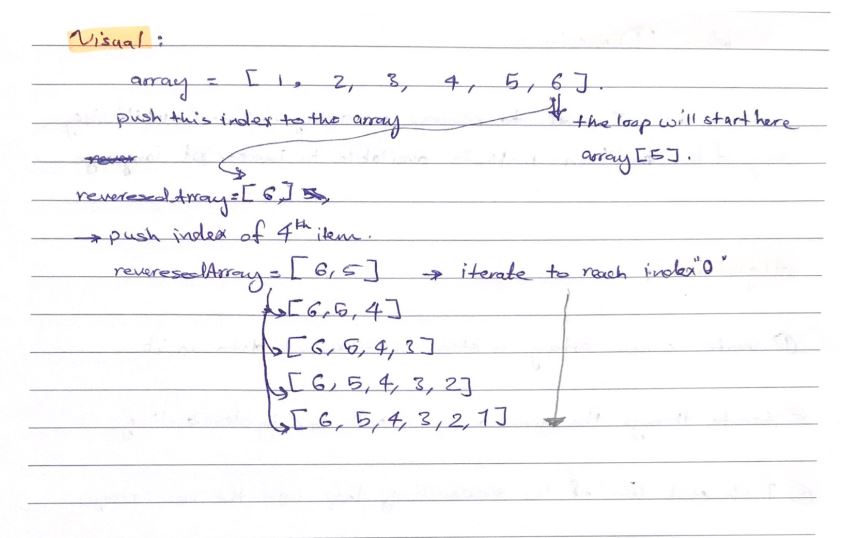 Visual :
array = [ 1, 2, 3, 4, 5, 6 ].
push this index to the array
the loop will start here
array [5].
reveresedArray = [ 6, ]
→ push index of 4th item.
reveresedArray = [ 6, 5 ] → iterate to reach index "0"
[ 6, 5, 4 ]
[ 6, 5, 4, 3 ]
[ 6, 5, 4, 3, 2 ]
[ 6, 5, 4, 3, 2, 1 ]